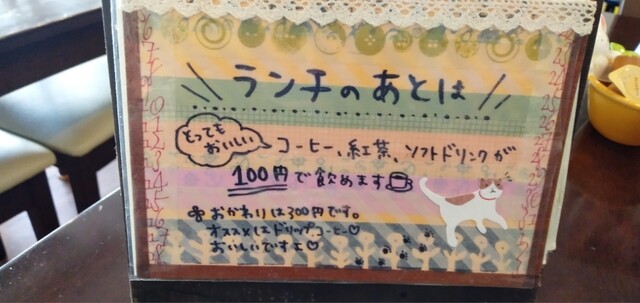 ランチのあとは
とっても
おいしい
コーヒー、紅茶、ソフトドリンクが
100円で飲めます
おかわりは300円です。
オススメはドリップコーヒー♡
おいしいですよ♡